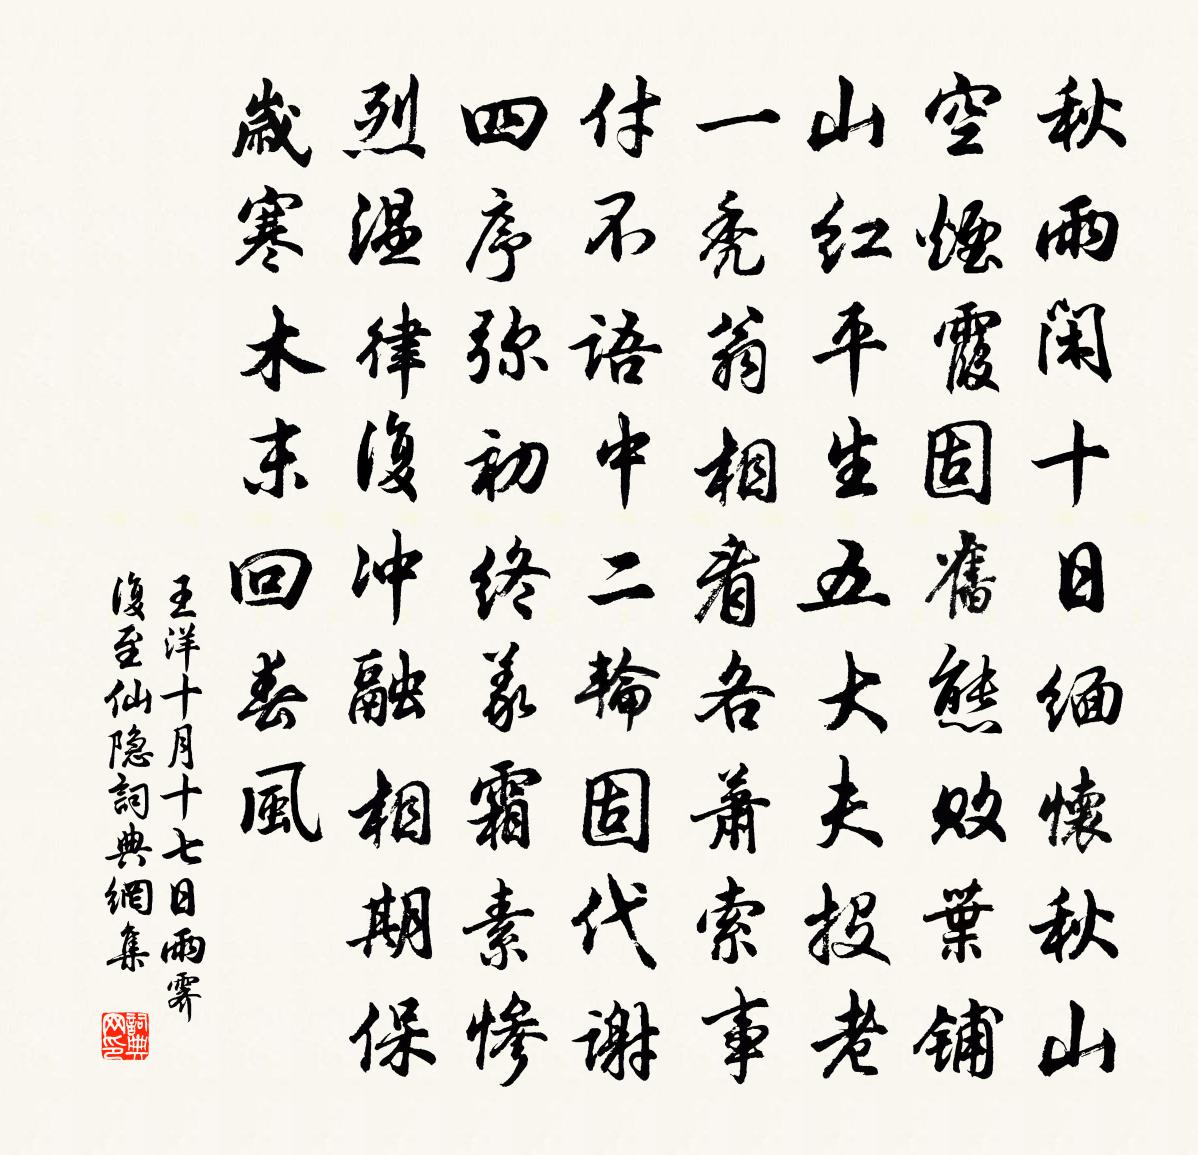 秋雨闲十日缅懷秋山
空煙霞固舊態败葉铺
山红平生五大夫投老
一秃翁相看各萧索事
付不語中二輪固代谢
四序弥初终義霜素慘
烈温律復冲融相期保
歲寒木末回春風
王洋十月十七日雨霁
復至仙隐詞典網集
詞典
网印